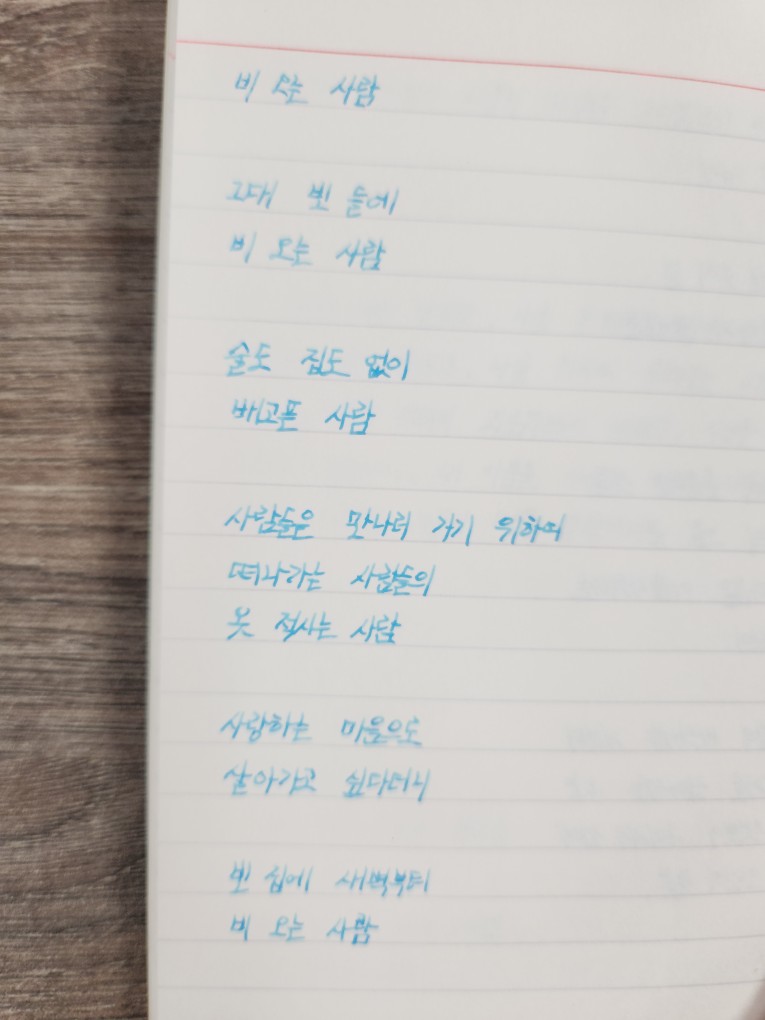 비 오는 사람
그대 빈 들에
비 오는 사람
술도 집도 없이
배고픈 사람
사람들은 만나러 가기 위하여
떠나가는 사람들의
옷 적시는 사람
사랑하는 마음으로
살아가고 싶다더니
빈 집에 새벽부터
비 오는 사람